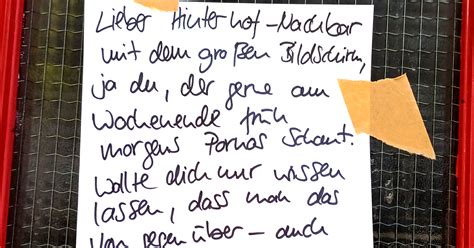 Lieber Hinterhof-Nachbar
mit dem großen Bildschirm,
ja du, der gerne am
Wochenende früh
morgens Pornos schaut.
Wollte dich nur wissen
lassen, dass man das
von gegenüber – auch